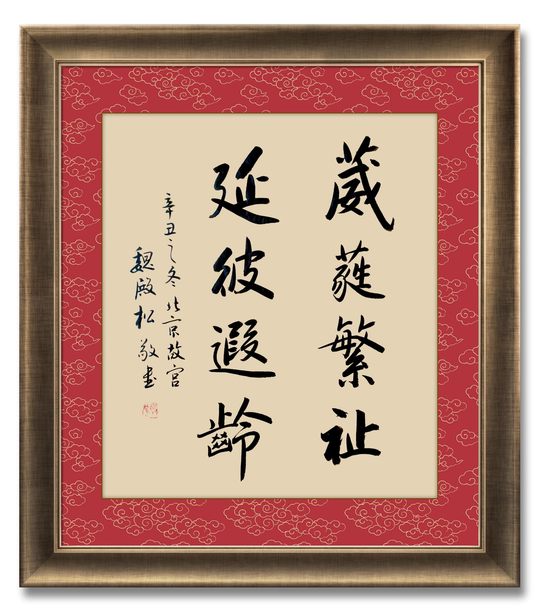 葳蕤繁祉
延彼遐齡
辛丑之冬北京故宮
魏殿松敬書